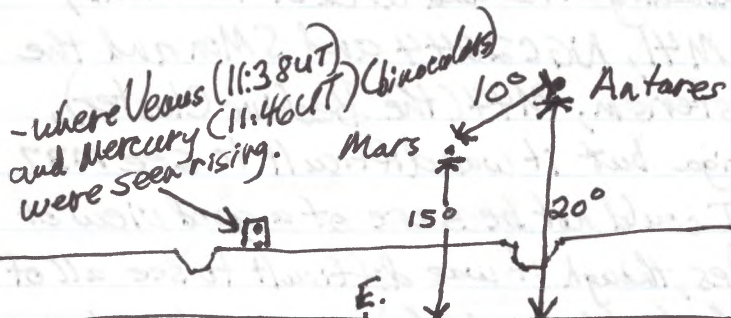 -where Venus (11:38UT)
and Mercury (11:46UT) (binoculars)
were seen rising.
10° Antares
Mars
15° 20°
E.